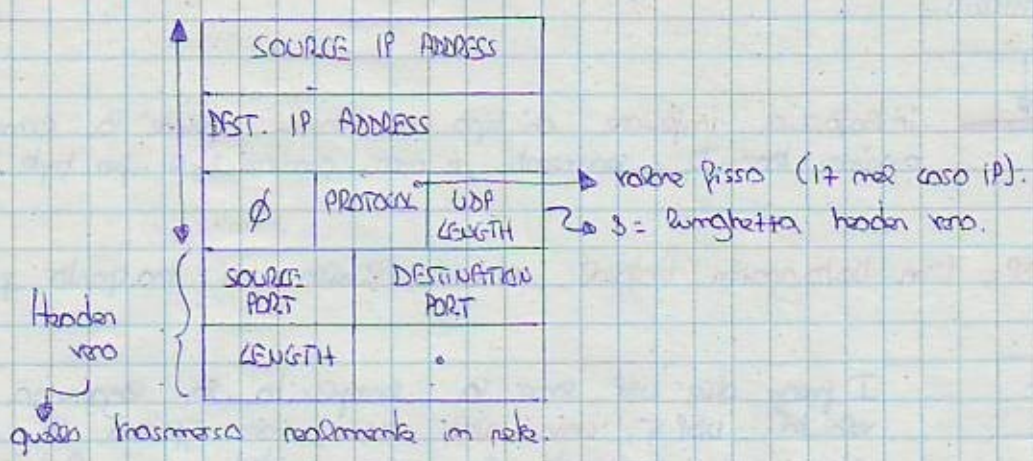 SOURCE IP ADDRESS
DEST. IP ADDRESS
Ø PROTOCOL UDP LENGTH
valore fisso (17 nel caso IP).
8 = lunghetta header vero.
SOURCE PORT DESTINATION PORT
Header vero
LENGTH
quello trasmesso realmente in rete.